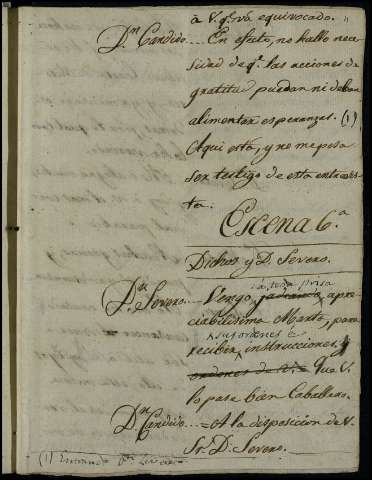 à V. q.e va equivocado. "
D.n Candido..... En efecto, no hallo nece
sidad de q.e las acciones de
gratitud puedan ni deban
alimentar esperanzas. (1)
Aqui está, y no me pesa
ser testigo de esta entrevis
ta.
Escena 6.a
Dichos y D. Severo.
D.n Severo... Vengo, con toda prisa apre
ciabilisima Marta, para
recibir sus ordenes é instrucciones,
ordenes de Que V.
lo pase bien Caballero.
D.n Candido.... A la disposicion de V.
S.r D. Severo.
(1)